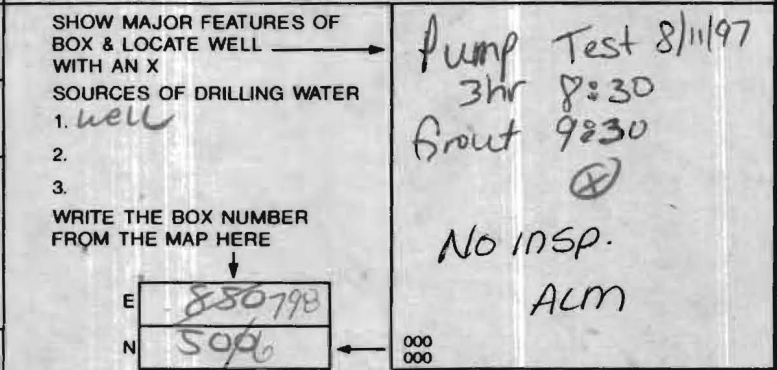 SHOW MAJOR FEATURES OF
BOX & LOCATE WELL
WITH AN X
SOURCES OF DRILLING WATER
1. well
2.
3.
WRITE THE BOX NUMBER
FROM THE MAP HERE
E 880 798
N 5006
Pump Test 8/11/97
3hr 8:30
Grout 9:30
X
No insp.
ALM
000
000